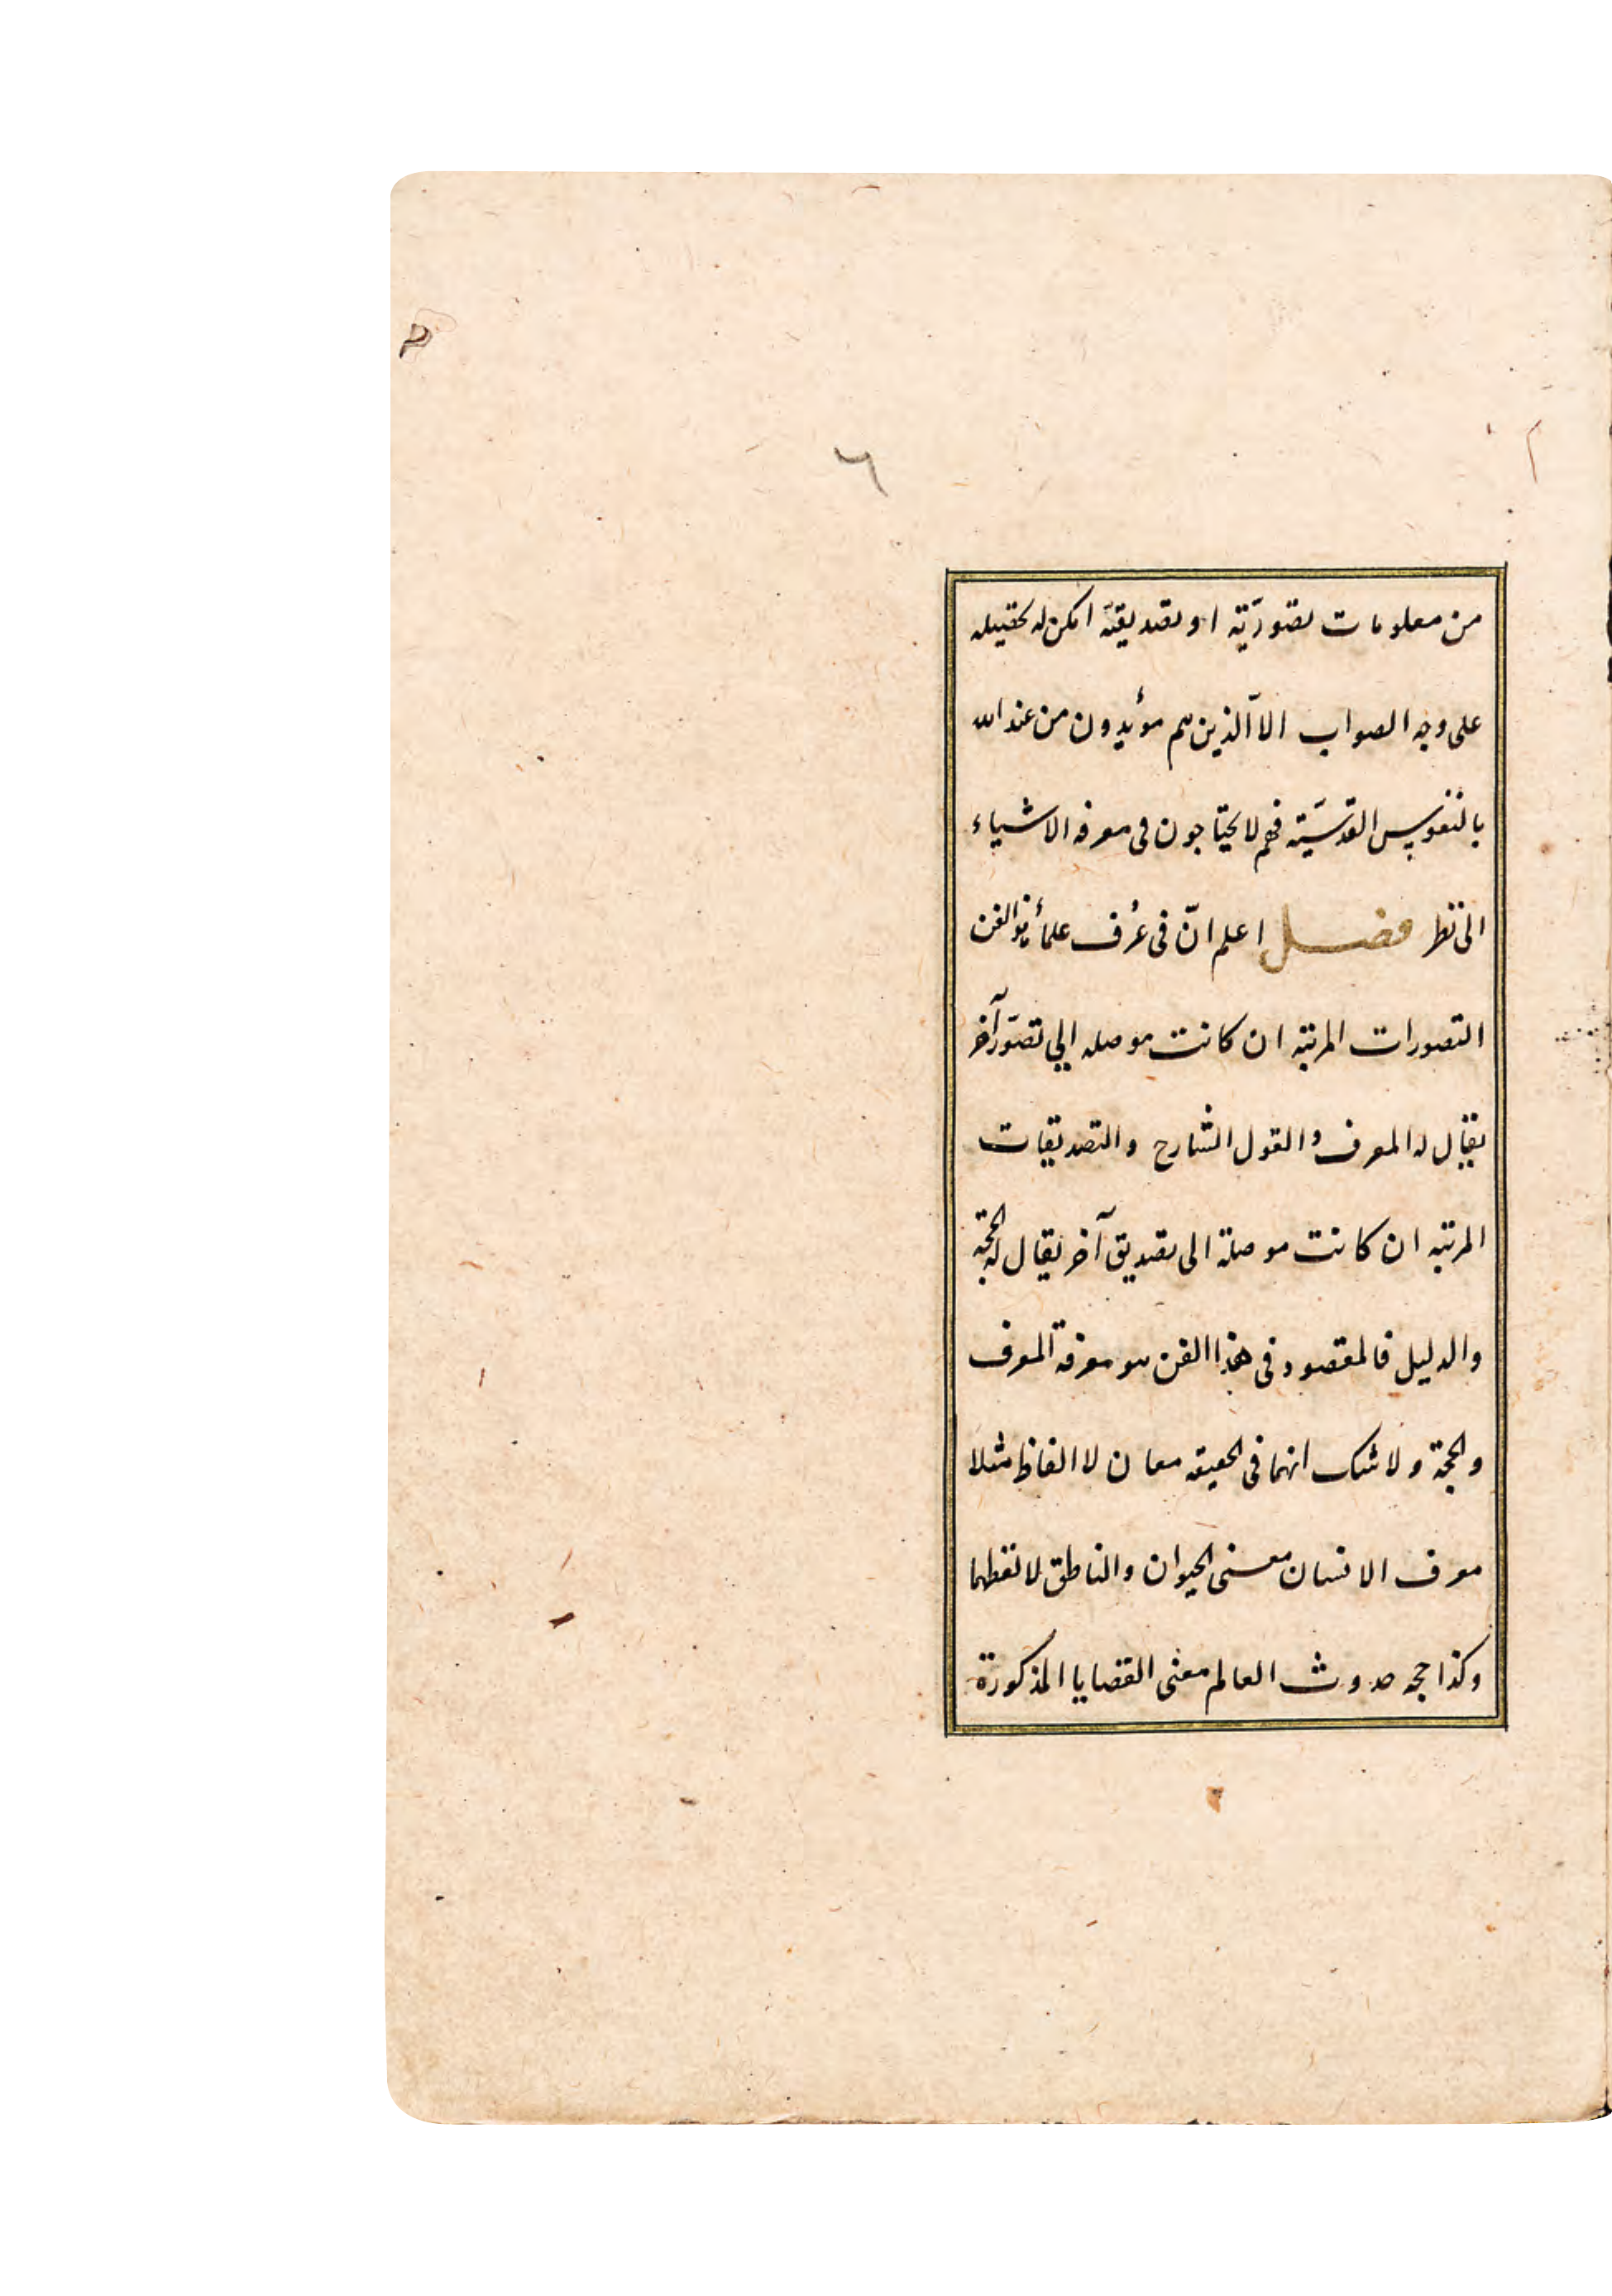 ٦
من معلومات تصوريّة او تصديقيّة امكن له تحصيله
على وجه الصواب الا الّذين هم مؤيدون من عند الله
بالنفوس القدسيّة فهم لا يحتاجون فى معرفه الاشياء
الى نظر فصل اعلم انّ فى عُرف علمأ هذا الفن
التصورات المرتبه ان كانت موصله الي تصوّر آخر
يقال له المعرف والقول الشارح والتصديقات
المرتبه ان كانت موصلة الى تصديق آخر يقال له الحجة
والدليل فالمقصود فى هذا الفن هو معرفة المعرف
والحجة ولا شك انهما فى الحقيقه معان لا الفاظ مثلا
معرف الانسان معنى الحيوان والناطق لا لفظهما
وكذا حجه حدوث العالم معنى القضايا المذكورة